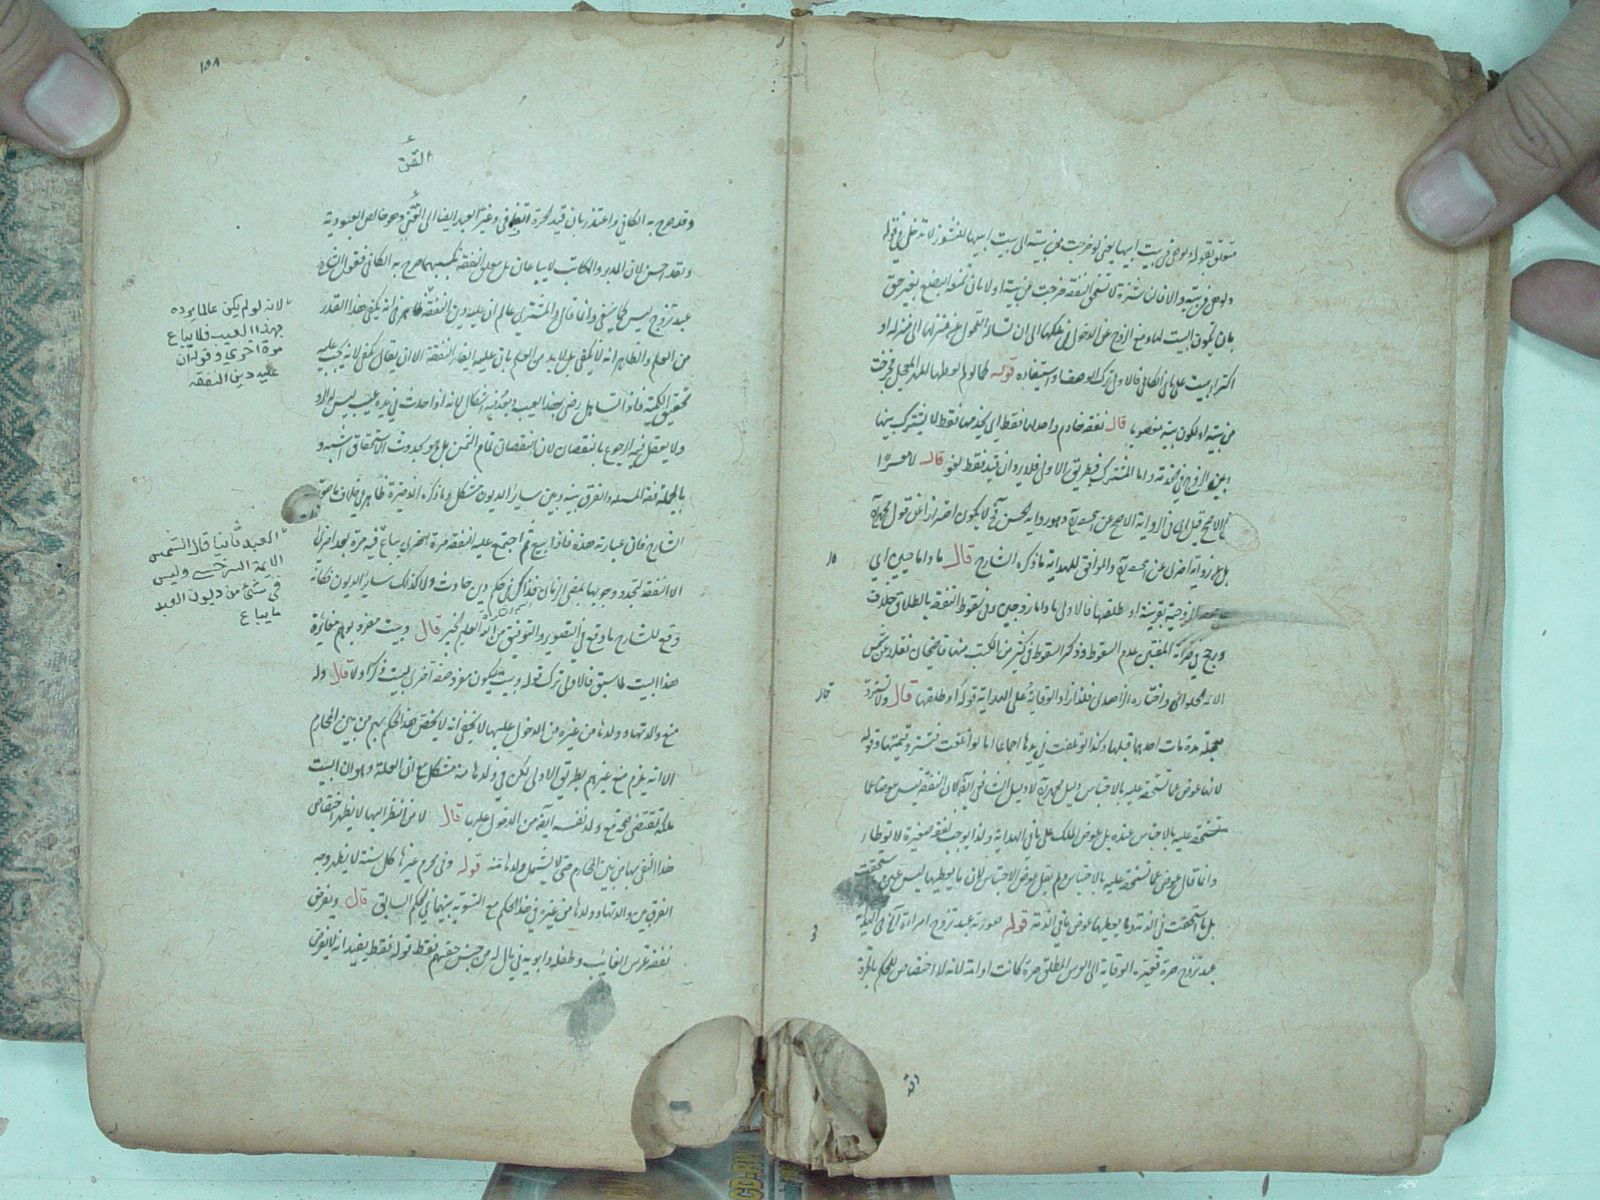 متعلق بقوله ولو هي في بيت ابيها يعني لو خرجت من بيته الى بيت ابيها للنشوز لا تدخل في قوله
ولو هي في بيته والا فان ناشزة لا تستحق النفقة خرجت من بيته اولا بان تمنع البضع بغير حق
بان يكون البيت لها ومنع الزوج عن الدخول في ملكها الى ان تسأله التحول عن منزلها الى منزله او
اكترا بيت على ما في الكافي فالاولى ترك الوصف واستيفاده قوله كما لو لم يعطها المهر المعجل فخرجت
من بيته او يكون بيته مغصوبا قال نفقة خادم واحد لها فقط اي يخدمها فقط لا يشترك بينها
وبين الزوج في خدمة واما المشترك فبطريق الاولى فلا يرد ان قيد فقط لغو قال لا معسرا
في الاصح قيل اي في الرواية الاصح عن وهو رواية الحسن لا يكون احترازا عن قول محمد
بل عن رواية اخرى عن والموافق للهداية ما ذكره الشارح قال ما داما حيين اي
الزوجية بقرينة او طلقها فالاولى ما داما زوجين وفي سقوط النفقة بالطلاق خلاف
ورجح في خزانة المفتين عدم السقوط وذكر السقوط في كثير من الكتب منها قاضيخان نقله عن شمس
الائمة الحلواني واختاره فلذا زاد الوقاية على الهداية قوله او طلقها قال ولا تسترد
معجلة مدة مات احدهما قبلها وكذا لو تلفت في يدها اجماعا اما لو اتلفت فتسترد قيمتها وقوله
لانها عوض عما تستحقه عليه بالاحتباس دليل محمد لا دليل الشافعي لان النفقة ليس عوضا عما
تستحقه عليه بالاحتباس عنده بل عوض الملك على ما في الهداية ولذا يوجب نفقة صغيرة لا توطأ
وانما قال عوض عما تستحقه عليه بالاحتباس ولم يقل عوض الاحتباس لان ما يعطيها ليس عين
بل ما استحقت في الذمة وما يعطيها عوض ما في الذمة قوله صورته عبد تزوج امراة الى في الهداية
عبد تزوج حرة فغيره الوقاية الى العرس المطلق حرة كانت او امة لانه لا اختصاص للحكم بالحرة
وقد
١٥٨
القن
وقد صرح به الكافي واعتذر بان قيد الحرة اتفاقي وغير العبد ايضا الى القن وهو خالص العبودية
ولقد احسن لان المدبر والمكاتب لا يباعان بل يتعلق النفقة بكسبهما صرح به الكافي فقول الشارح
عبد تزوج ليس كما ينبغي وانما قال والمشتري عالم ان عليه دين النفقة ظاهر في انه يكفي هذا القدر
من العلم والظاهر انه لا يكفي بل لا بد من العلم بان عليه ايفاء النفقة الا ان يقال يكفي لانه يجب عليه
تحقيق الكمية فاذا تساهل رضي بهذا العيب وبعد فيه اشكال لانه اذا حدث في يده عيب ليس له الرد
ولا يعقل فيه الرجوع بالنقصان لان النقصان تمام الثمن بل هو كحدوث الاستحقاق اشبه و
بالجملة فقه المسئلة والفرق بينه وبين سائر الديون مشكل وما ذكره الذخيرة ظاهر في خلاف ما صوره
الشارح فان عبارته هذه فاذا بيع ثم اجتمع عليه النفقة مرة اخرى يباع فيه مرة بعد اخرى
الا النفقة لتجدد وجوبها بمضي الزمان فذلك في حكم دين حادث ولا كذلك سائر الديون فكانه
وقع للشارح ما وقع في التصوير والتوفيق من الله العليم الخبير قال ويجب مفردة يوهم مغايرة
هذا البيت لما سبق فالاولى ترك قوله وبيت ليكون مفردة صفة اخرى لبيت ذكر اولا قال وله
منع والديها وولدها من غيره من الدخول عليها لا يخفى انه لا يختص هذا الحكم بهم من بين المحارم
الا انه يلزم منع غيرهم بطريق الاولى لكن في ولدها منه مشكل مع ان العلة وهو ان البيت
ملكه تقتضي صحة منع ولد نفسه ايضا من الدخول عليها قال لا من النظر اليها لا يظهر اختصاص
هذا النفي بها من بين المحارم حتى لا يشمل ولدها منه قوله وفي محرم غيرها كل سنة لا يظهر وجه
الفرق بين والديها وولدها من غيره في هذا الحكم مع التسوية بينهما في الحكم السابق قال ويفرض
نفقة عرس الغائب وطفله وابويه في مال له من جنس حقهم فقط قوله فقط يفيد انه لا يفرض
لانه لو لم يكن عالما يرده
بهذا العيب فلا يباع
مرة اخرى وقوله ان
عليه دين النفقه
العبد ثانيا قال الشمس
الائمة السرخسي وليس
في شئ من ديون العبد
ما يباع